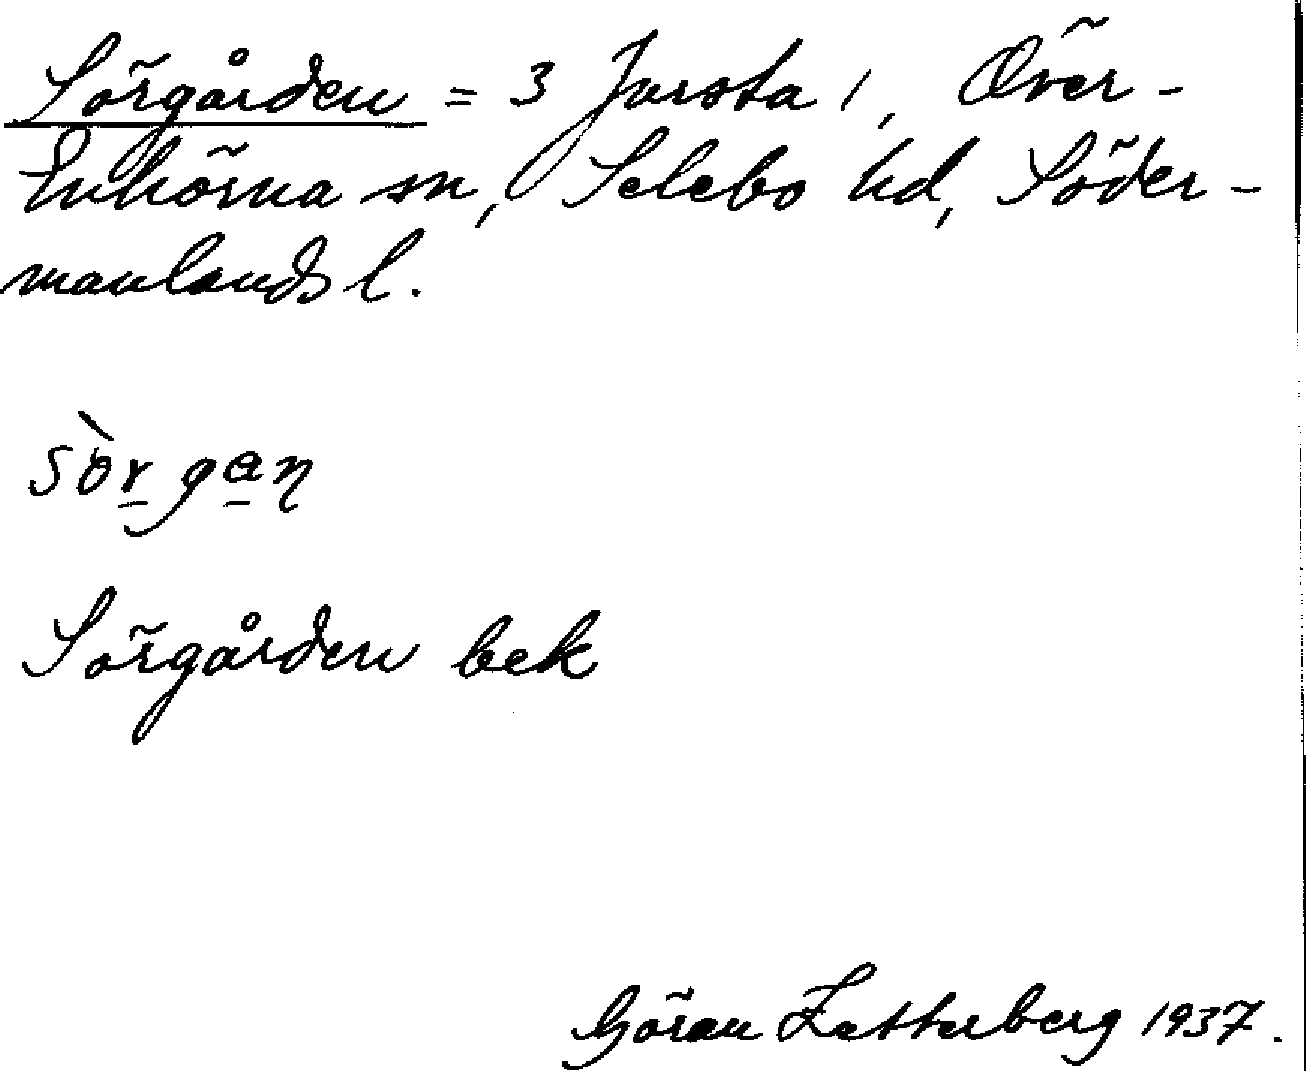 Sörgården = 3 Jursta 1, Över-
Enhörna sn, Selebo hd, Söder-
manlands l.
Sörgården bek
Göran Zetterberg 1937.